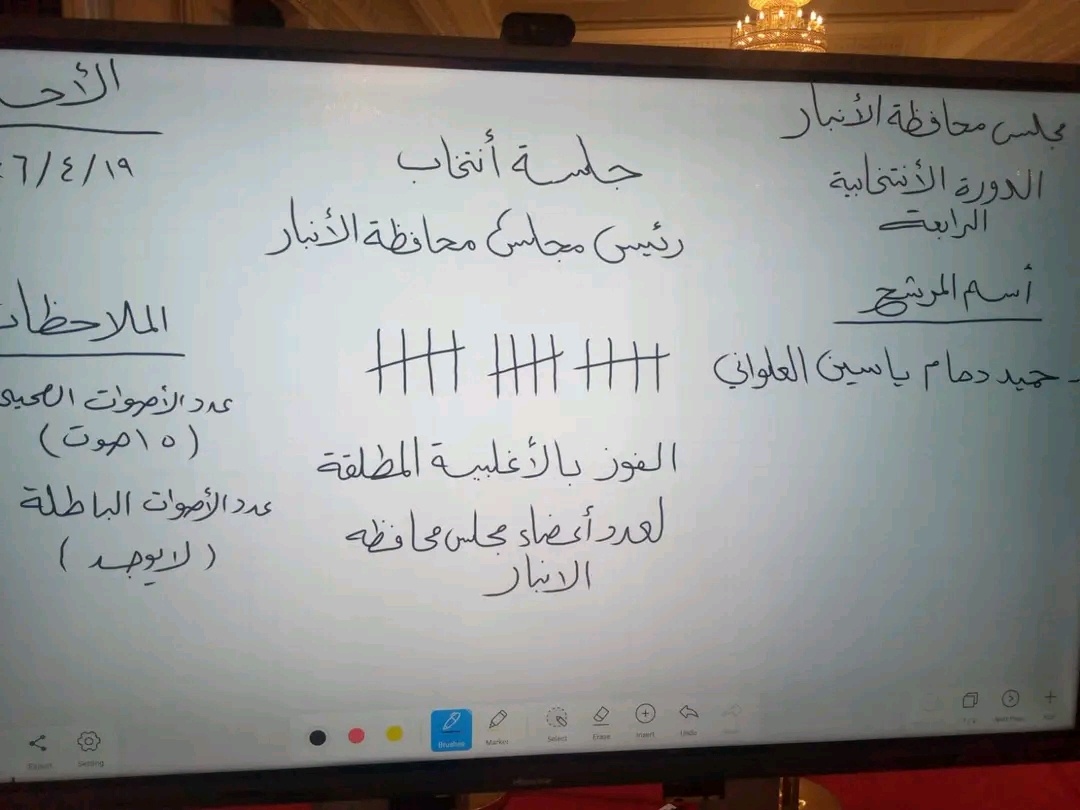 مجلس محافظة الأنبار
الدورة الأنتخابية
الرابعة
أسم المرشح
حميد دهام ياسين العلواني
جلسة أنتخاب
رئيس مجلس محافظة الأنبار
الفوز بالأغلبية المطلقة
لعدد أعضاء مجلس محافظه
الانبار
الأحـ
٦/٤/١٩
الملاحظات
عدد الأصوات الصحيـ
(١٥ صوت)
عدد الأصوات الباطلة
(لا يوجد)
Export
Setting
Brushes
Marker
Select
Erase
Insert
Undo